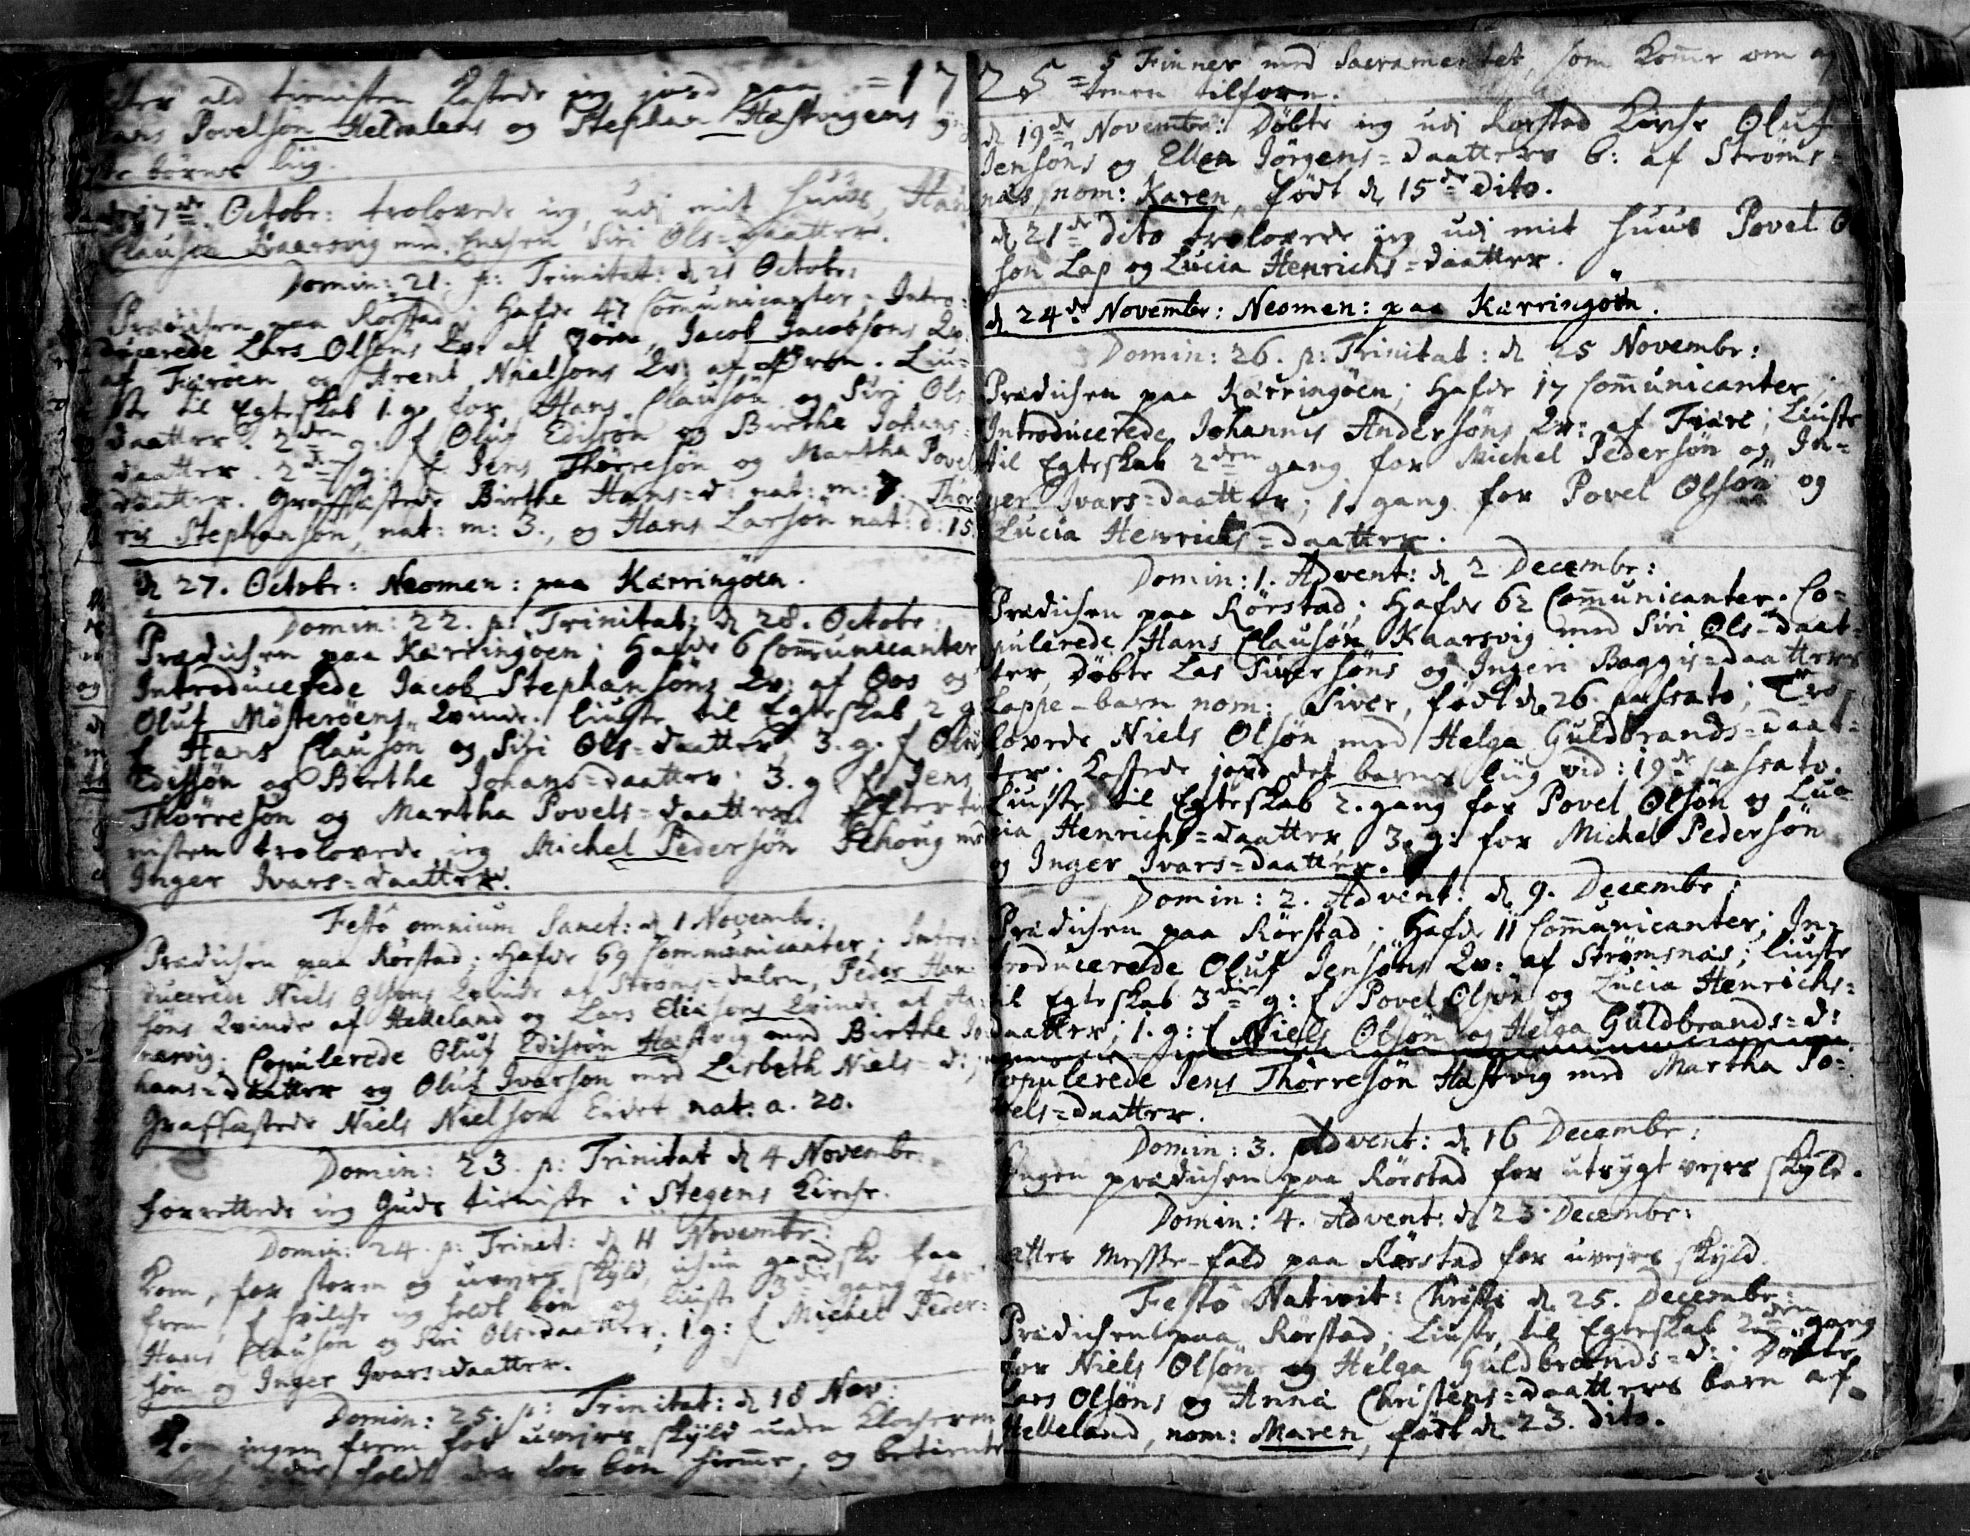 efter ald tienisten kastede jeg jord paa = 17
Lars Povelsøn Heldalens og Stephan Hestvigens
børns liig.
d 17de Octobr: trolovede jeg, udi mit huus, Hans
Clausøn Kaarsvig med Enken Siri Ols=daatter.
Domin: 21. p: Trinitat: d 21 Octobr:
Prædichen paa Rørstad; Hafde 47 Communicanter; Intro=
ducerede Lars Olsøns Qv: af Jacob Jacobsøns Qv:
af Færøen og Arent Nielsøns Qv: af . Liu=
ste til Egteskab 1. g. for Hans Clausøn og Siri Ols
daatter. 2den g: f Oluf Edissøn og Birthe Johans=
daatter. 2den g: f Jens Thørresøn og Martha Povels
daatter. Graffæstede Birthe Hans=d: nat: m: 7. Thør
ris Stephansøn, nat: m: 3., og Hans Larsøn nat: d: 15.
d 27. Octobr: Neomen: paa Kærringøen.
Domin: 22. p: Trinitat: d 28. Octobr:
Prædichen paa Kærringøen; Hafde 6 Communicanter
Introducerede Jacob Stephansøns Qv: af Oos og
Oluf Møsterøens Qvinde. liuste til Egteskab 2 g
f Hans Clausøn og Siri Ols=daatter; 3. g. f Oluf
Edissøn og Birthe Johans=daatter; 3. g f Jens
Thørresøn og Martha Povels=daatter. Efter tie
nisten trolovede jeg Michel Pedersøn Fehoug med
Inger Ivars=daatter.
Festo omnium Sanct: d 1 Novembr:
Prædichen paa Rørstad; Hafde 69 Communicanter; Intro=
ducerede Niels Olsøns Qvinde af Strøms=dalen, Peder Han
søns Qvinde af Helleland og Lars Eliesøns Qvinde af
narvig. Copulerede Oluf Edissøn Hæstvig med Birthe Jo
hans=daatter og Oluf Ivarsøn med Lisbeth Niels=d:;
Graffæstede Niels Nielsøn Eidet nat: a. 20.
Domin: 23. p: Trinitat d 4 Novembr:
forrettede jeg Guds tieniste i Stegens Kirche.
Domin: 24. p: Trinit: d 11 Novembr:
Kom, for storm og uveyrs skyld, icke gandske faa
frem, f hvilche jeg holdt bøn og liuste 3die gang for
Hans Clausøn og Siri Ols=daatter; 1 g: f Michel Peder=
søn og Inger Ivarsdaatter.
Domin: 25. p: Trinitat: d 18 Nov:
Kom ingen frem for uveyrs skyld uden Klocheren
holdt der for bøn hiemme, og betiente
25 = 5 Finner med Sacramentet, som kome om af=
tenen tilforn.
d 19de Novembr: Døbte jeg udi Rørstad Kirche Oluf
Jensøns og Ellen Jørgens=daatters b: af Strøms=
næs, nom: Karen, født d 15de dito.
d 21de dito trolovede jeg udi mit huus Povel Ol
søn Lap og Lucia Henrichs=daatter.
d 24de Novembr: Neomen: paa Kærringøen.
Domin: 26. p: Trinitat: d 25 Novembr:
Prædichen paa Kærringøen; Hafde 17 Communicanter
Introducerede Johannis Andersøns Qv: af Fiære; Liuste
til Egteskab 2den gang for Michel Pedersøn og In=
ger Ivars=daatter; 1. gang for Povel Olsøn og
Lucia Henrichs=daatter.
Domin: 1. Advent: d 2 Decembr:
Prædichen paa Rørstad; Hafde 62 Communicanter. Co=
pulerede Hans Clausøn Kaarsvig med Siri Ols=daat=
ter, Døbte Las Siversøns og Ingeri Baggis=daatters
Lappe-barn nom: Siver, født d 26 passato; Tro=
lovede Niels Olsøn med Helga Guldbrands=daat=
ter. Kastede jord det barns liig vid: 19de passato.
Liuste til Egteskab 2. gang for Povel Olsøn og Lu=
cia Henrichs=daatter, 3. g: for Michel Pedersøn
og Inger Ivars=daatter.
Domin: 2. Advent: d 9. Decembr:
Prædichen paa Rørstad; Hafde 11 Communicanter; In=
troducerede Oluf Jensøns Qv: af Strømsnæs; liuste
til Egteskab 3die g: f Povel Olsøn og Lucia Henrichs=
daatter; 1. g: f Niels Olsøn og Helga Guldbrands=d:
Copulerede Jens Thørresøn Hæstvig med Martha Po=
vels=daatter.
Domin: 3. Advent: d 16 Decembr:
Ingen prædichen paa Rørstad for utrygt veyrs skyld.
Domin: 4. Advent: d 23 Decembr:
atter Messe-fald paa Rørstad for uveyrs skyld.
Festo Nativit: Christi d 25. Decembr:
Prædichen paa Rørstad; Liuste til Egteskab 2den gang
for Niels Olsøn og Helga Guldbrands=d:; Døbte
Lars Olsøns og Anna Christens=daatters barn af
Helleland, nom: Maren, født d 23. dito.